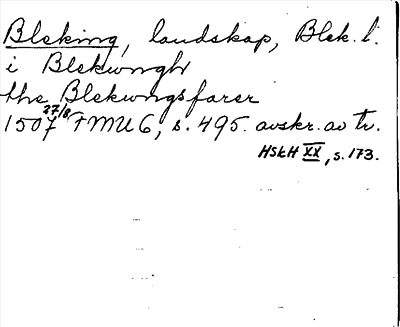 Bleking, landskap, Blek. l.
i Blekwngh
the Blekwngsfarer
27/8
1507 FMU 6, s. 495. avskr. av tr.
HSkH XX, s. 173.